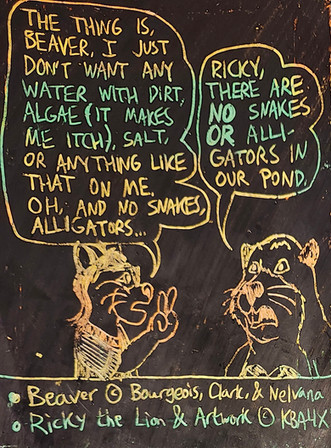 THE THING IS,
BEAVER, I JUST
DON'T WANT ANY
WATER WITH DIRT,
ALGAE (IT MAKES
ME ITCH), SALT,
OR ANYTHING LIKE
THAT ON ME.
OH, AND NO SNAKES,
ALLIGATORS...
RICKY,
THERE ARE
NO SNAKES
OR ALLI-
GATORS IN
OUR POND.
Beaver © Bourgeois, Clark, & Nelvana
Ricky the Lion & Artwork © KBAHX